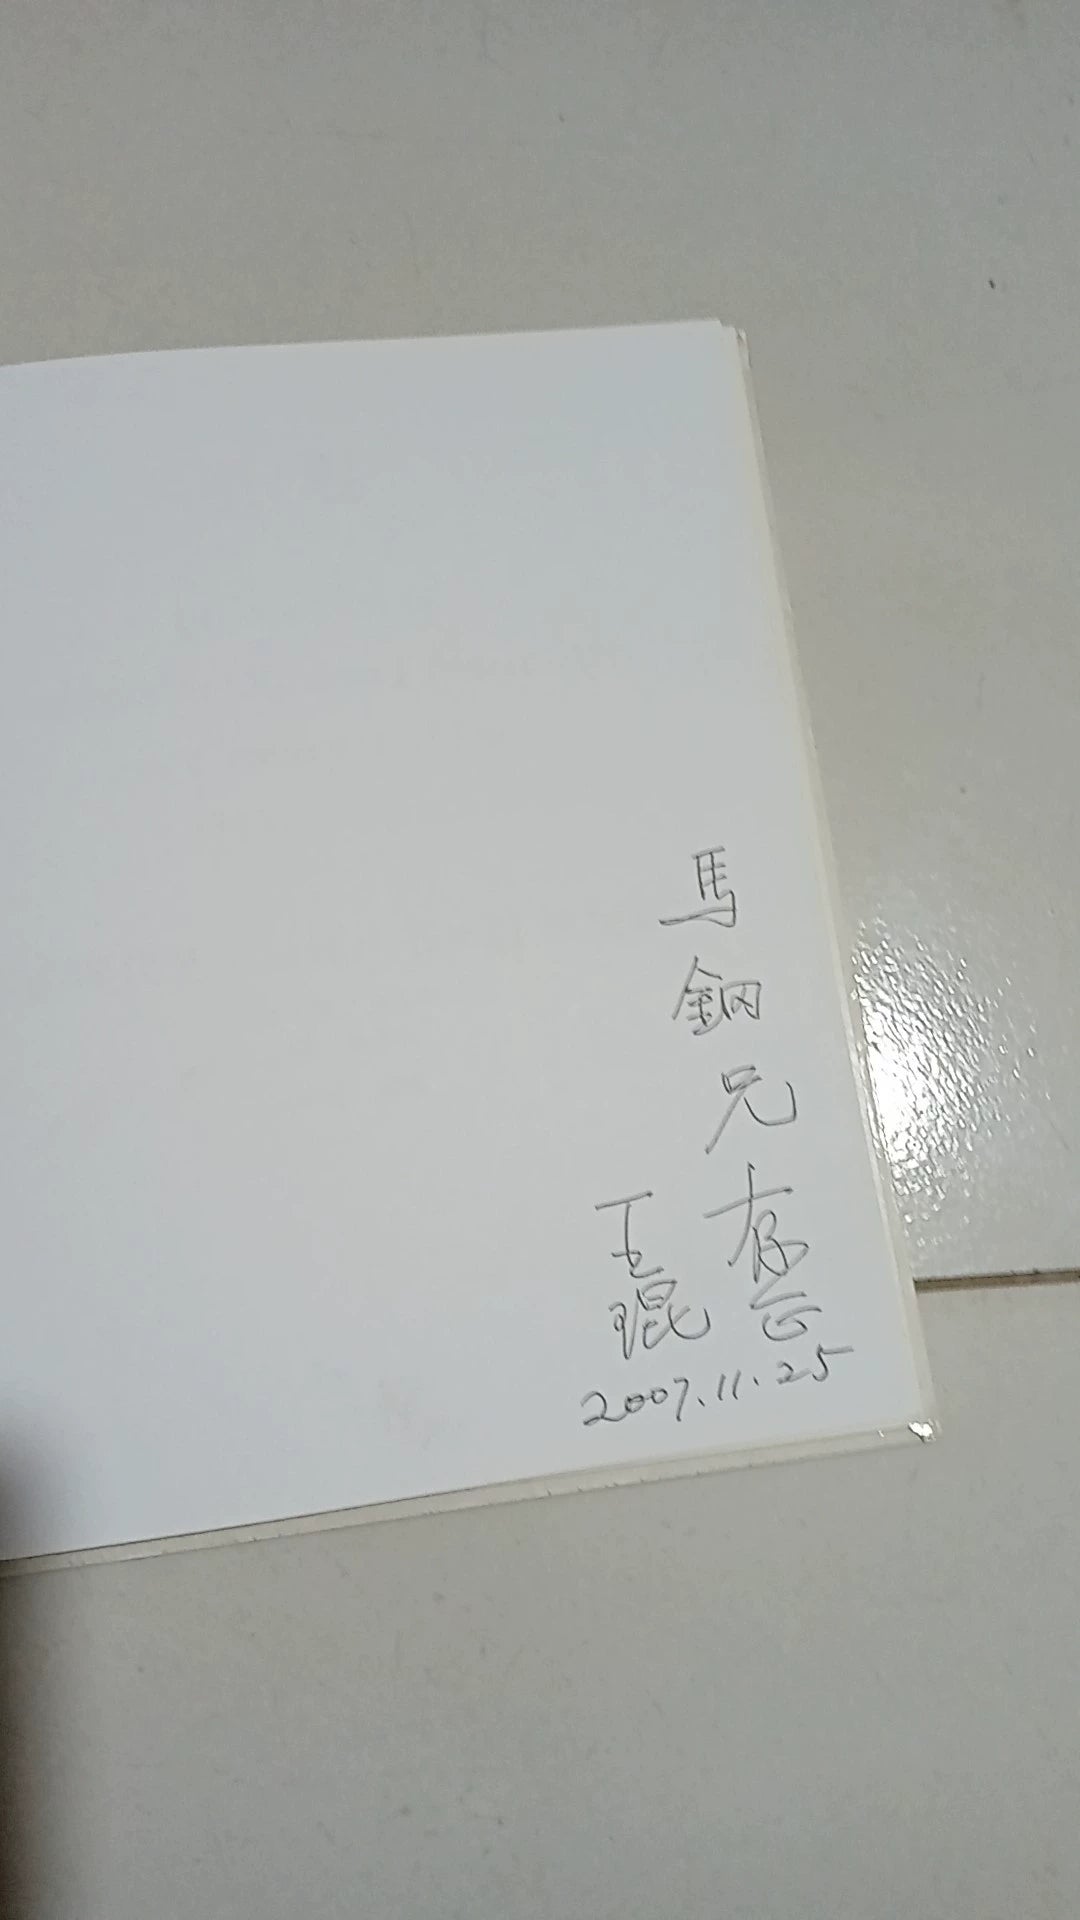 馬鋼兄存正
王琨
2007.11.25